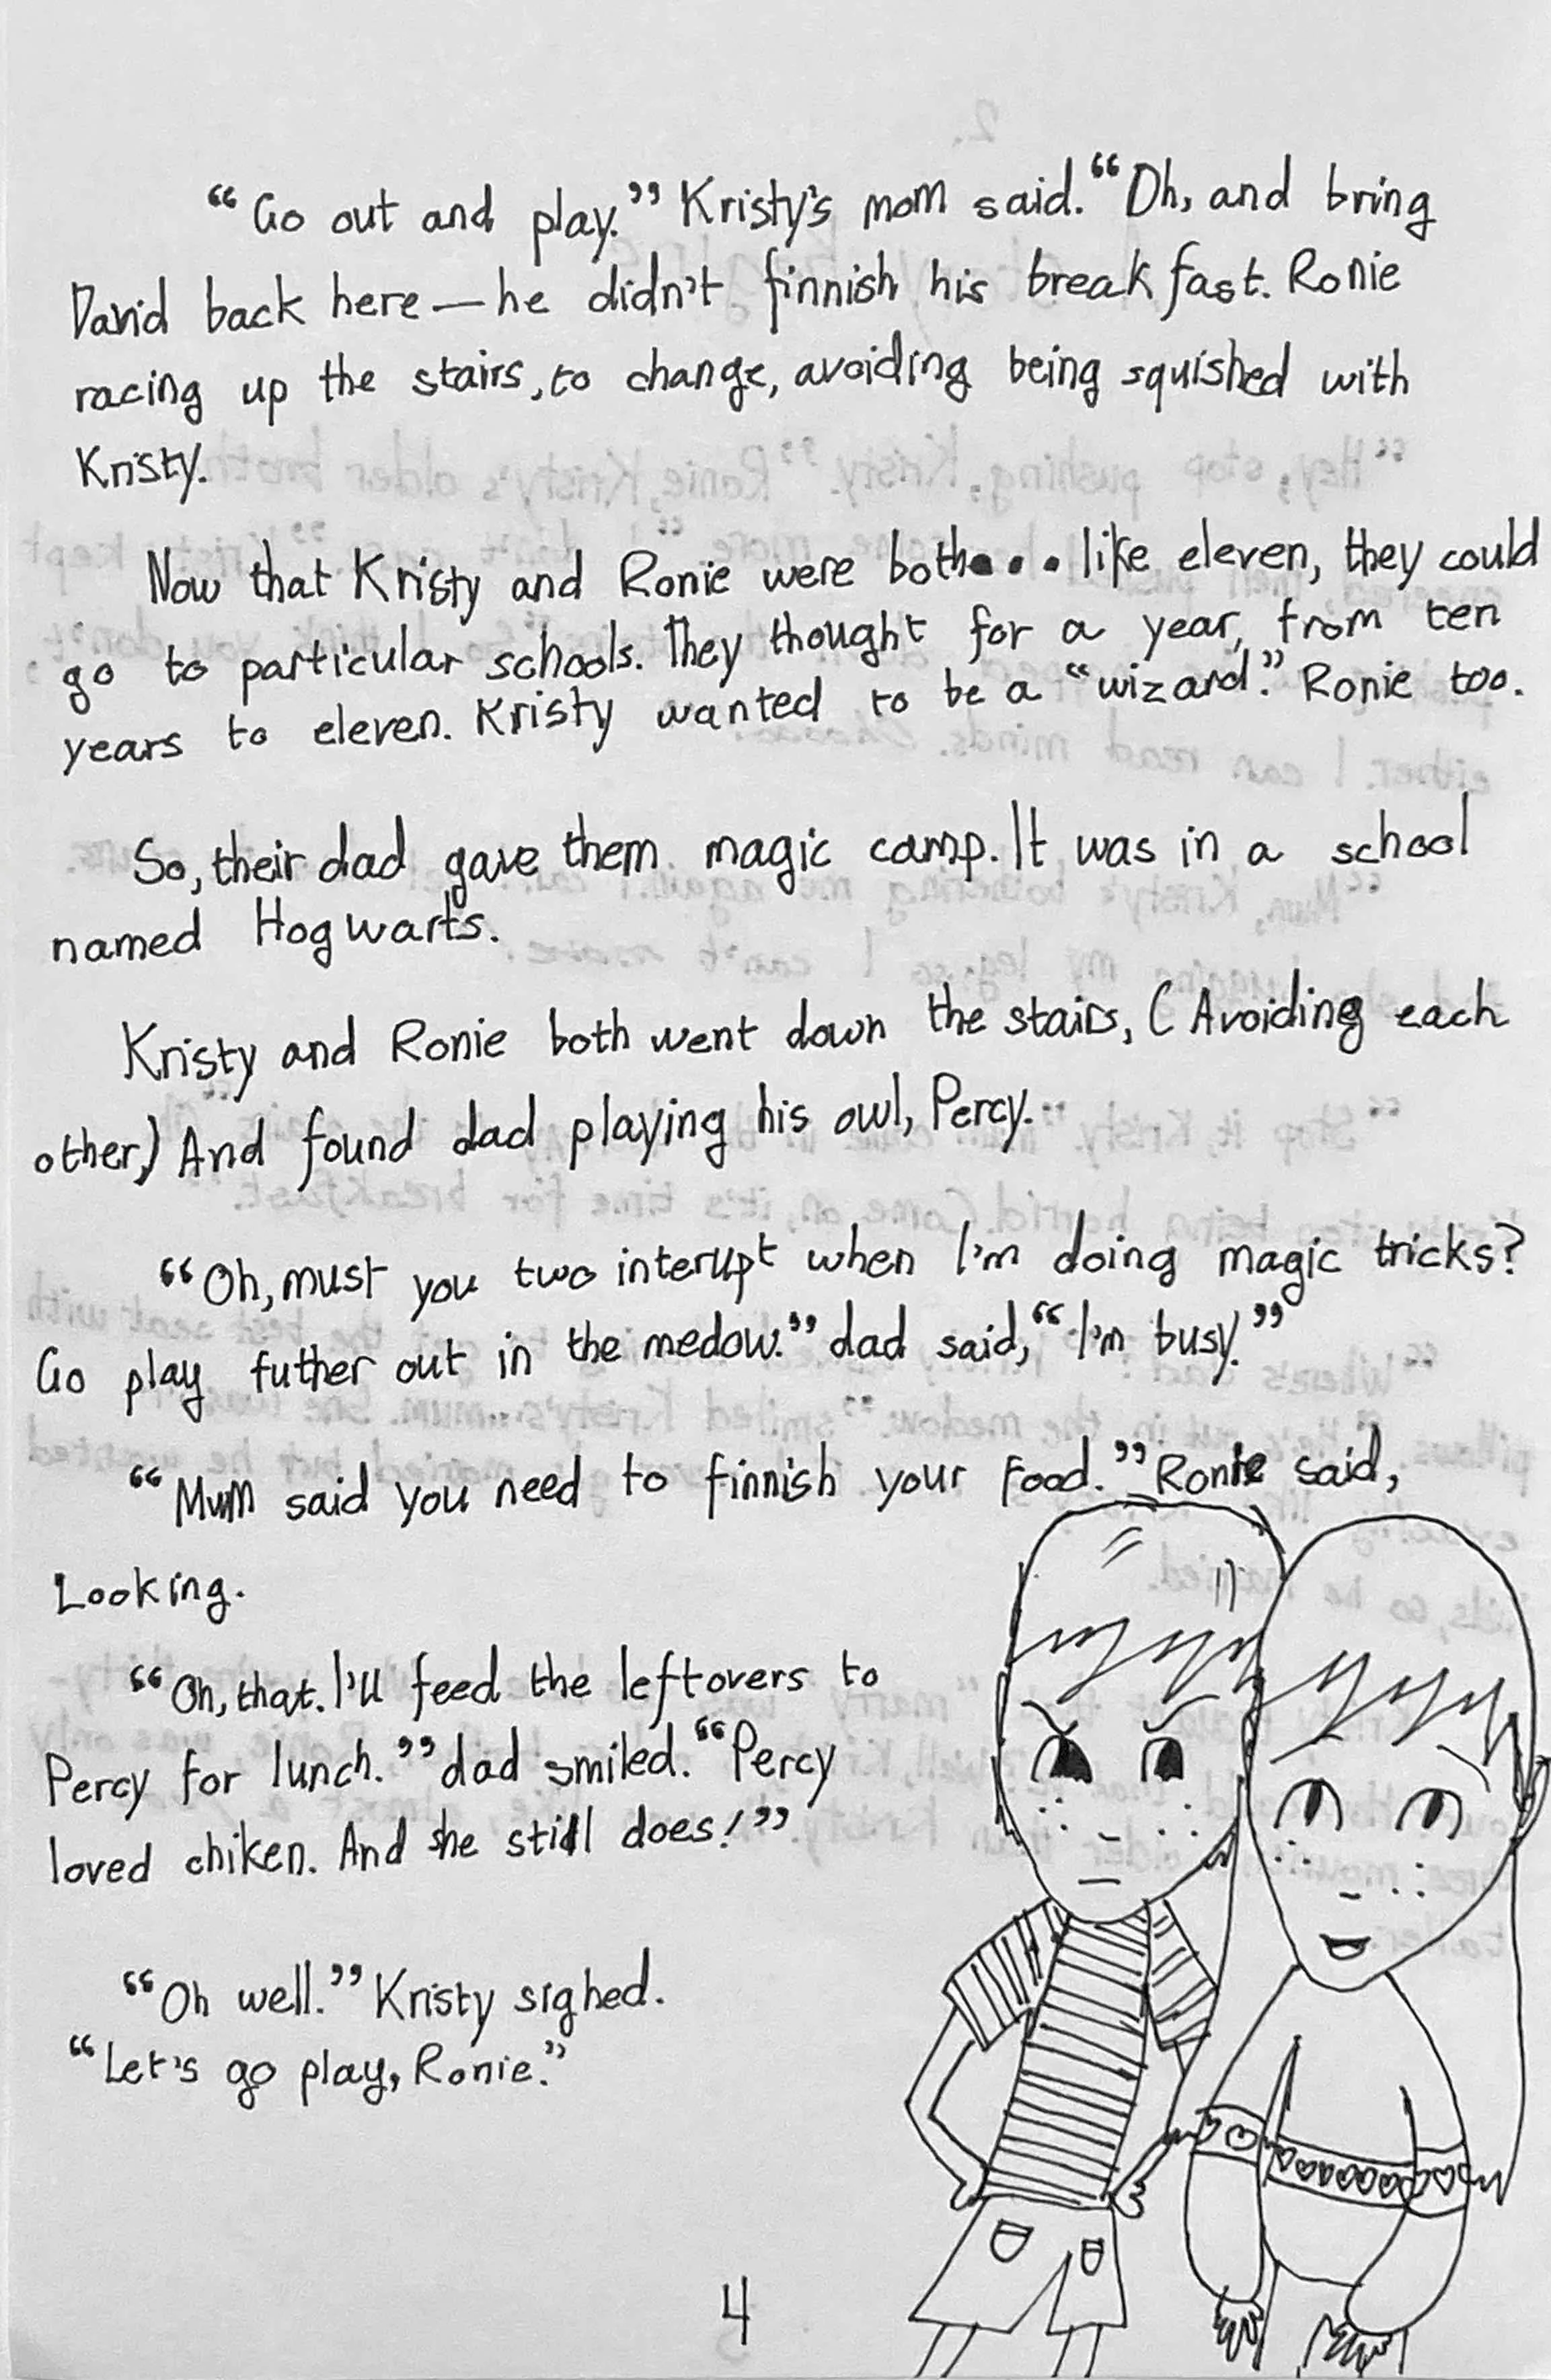 “Go out and play.” Kristy's mom said. “Oh, and bring
David back here—he didn't finnish his breakfast. Ronie
racing up the stairs, to change, avoiding being squished with
Kristy.
Now that Kristy and Ronie were both... like eleven, they could
go to particular schools. They thought for a year, from ten
years to eleven. Kristy wanted to be a “wizard.” Ronie too.
So, their dad gave them magic camp. It was in a school
named Hogwarts.
Kristy and Ronie both went down the stairs, (Avoiding each
other,) And found dad playing his owl, Percy.
“Oh, must you two interupt when I'm doing magic tricks?
Go play futher out in the medow.” dad said, “I'm busy.”
“Mum said you need to finnish your food.” Ronie said,
Looking.
“Oh, that. I'll feed the leftovers to
Percy for lunch.” dad smiled. “Percy
loved chiken. And she still does!”
“Oh well.” Kristy sighed.
“Let's go play, Ronie.”
4